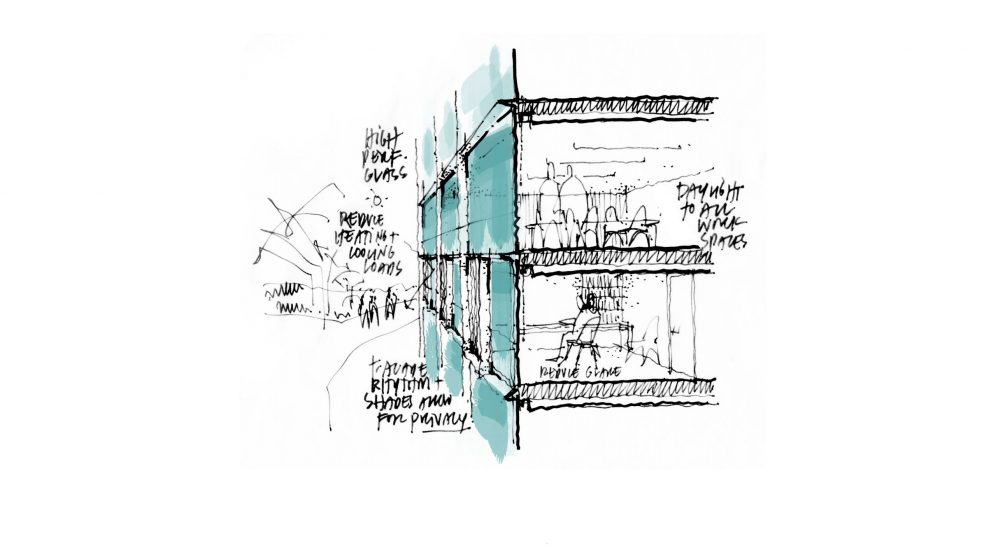 HIGH
PERF.
GLASS
REDUCE
HEATING +
COOLING
LOADS
DAYLIGHT
TO ALL
WORK
SPACES
REDUCE GLARE
FACADE
RHYTHM +
SHADES ALLOW
FOR PRIVACY